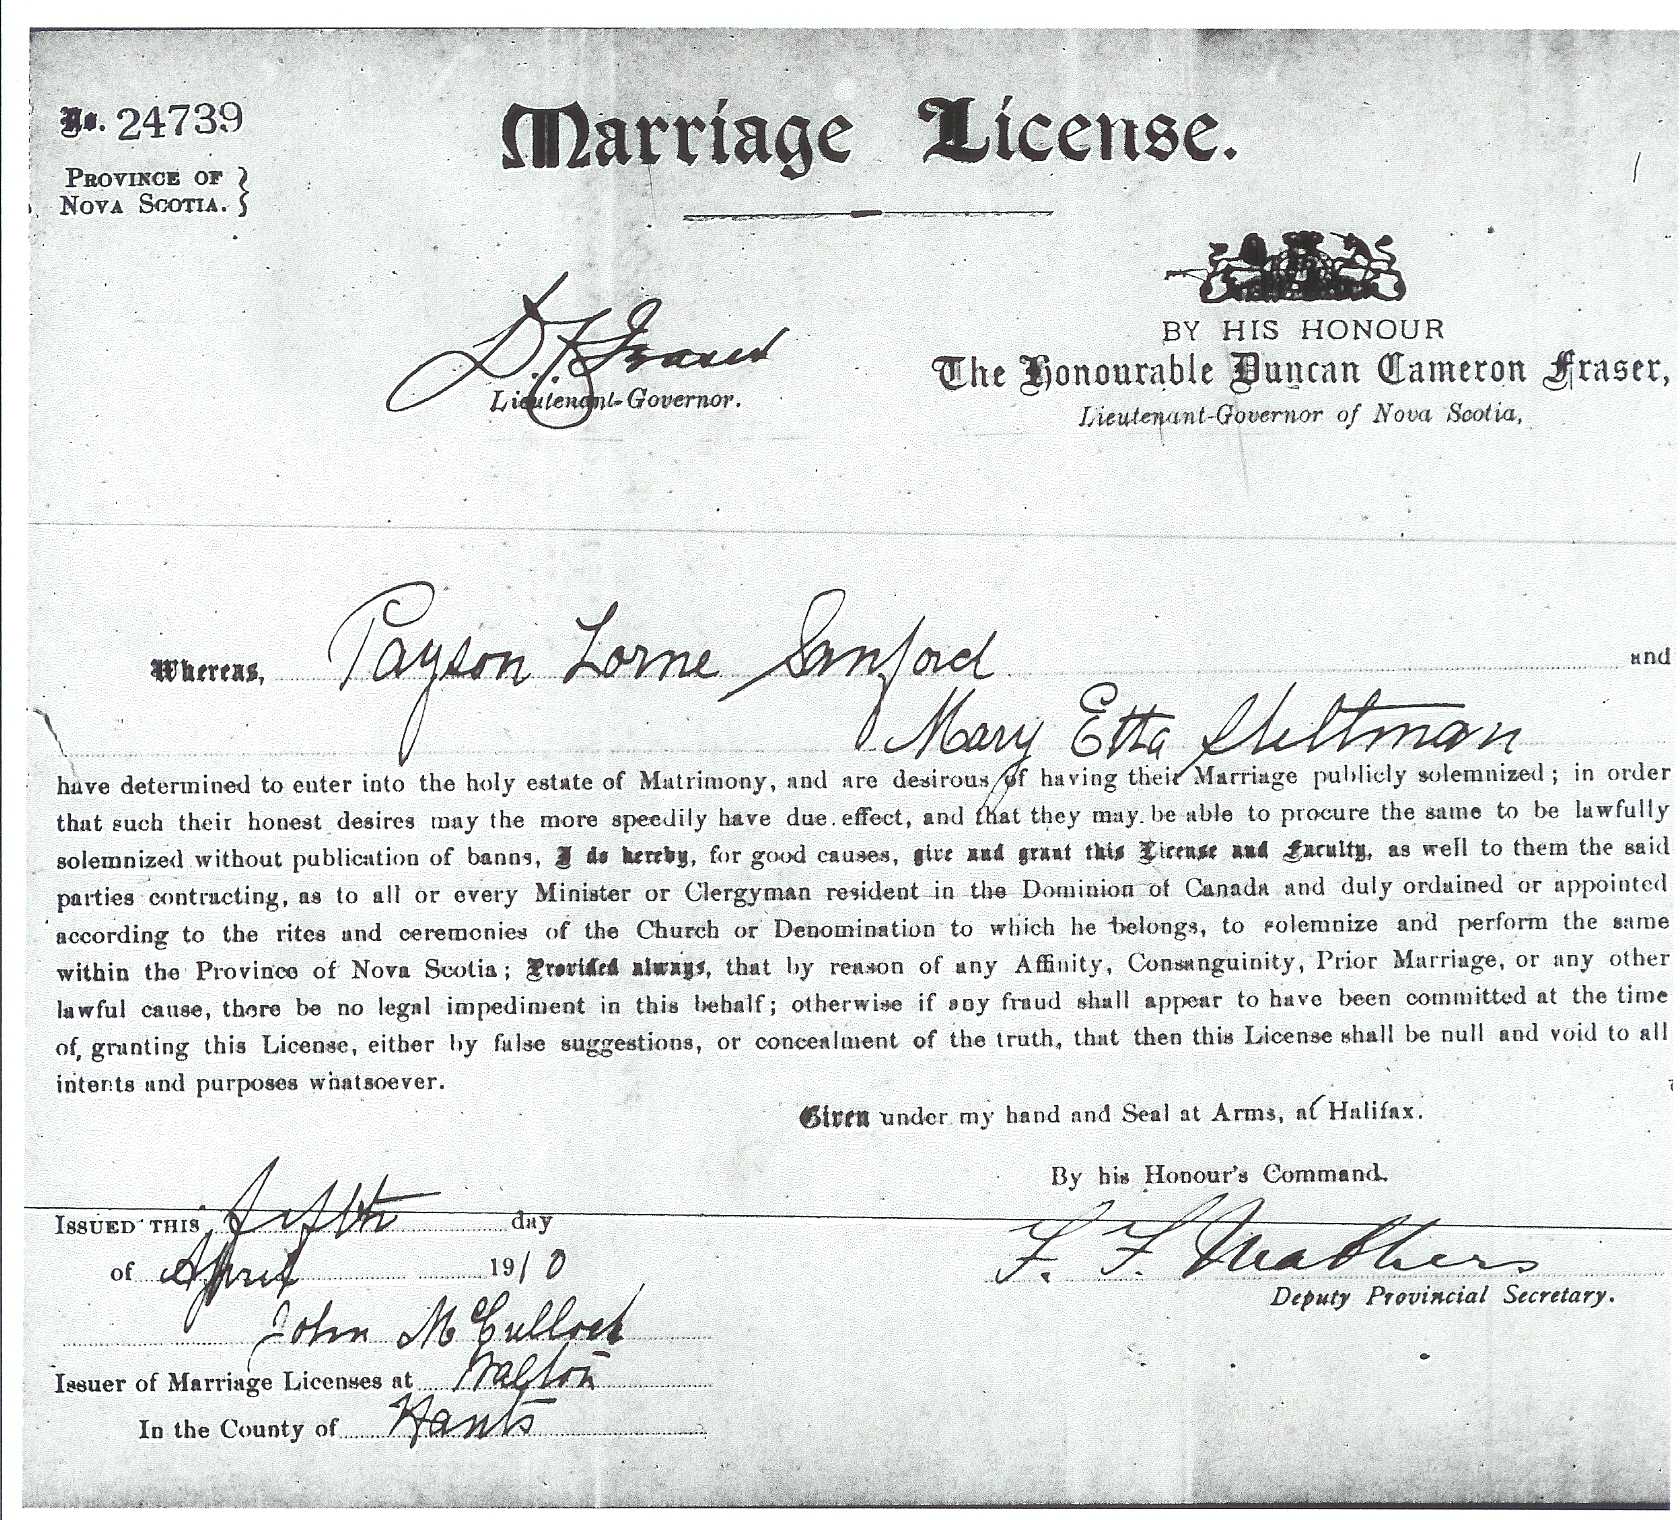 No. 24739
Marriage License.
PROVINCE OF
NOVA SCOTIA.
D. C. Fraser
Lieutenant-Governor.
BY HIS HONOUR
The Honourable Duncan Cameron Fraser,
Lieutenant-Governor of Nova Scotia,
Whereas, Payson Lorne Sanford and
Mary Etta
have determined to enter into the holy estate of Matrimony, and are desirous of having their Marriage publicly solemnized; in order
that such their honest desires may the more speedily have due effect, and that they may be able to procure the same to be lawfully
solemnized without publication of banns, I do hereby, for good causes, give and grant this License and Faculty, as well to them the said
parties contracting, as to all or every Minister or Clergyman resident in the Dominion of Canada and duly ordained or appointed
according to the rites and ceremonies of the Church or Denomination to which he belongs, to solemnize and perform the same
within the Province of Nova Scotia; Provided always, that by reason of any Affinity, Consanguinity, Prior Marriage, or any other
lawful cause, there be no legal impediment in this behalf; otherwise if any fraud shall appear to have been committed at the time
of granting this License, either by false suggestions, or concealment of the truth, that then this License shall be null and void to all
intents and purposes whatsoever.
Given under my hand and Seal at Arms, at Halifax.
By his Honour's Command.
ISSUED THIS fifth day
of April 1910
F. F. Mathers
Deputy Provincial Secretary.
John McCulloch
Issuer of Marriage Licenses at Walton
In the County of Hants